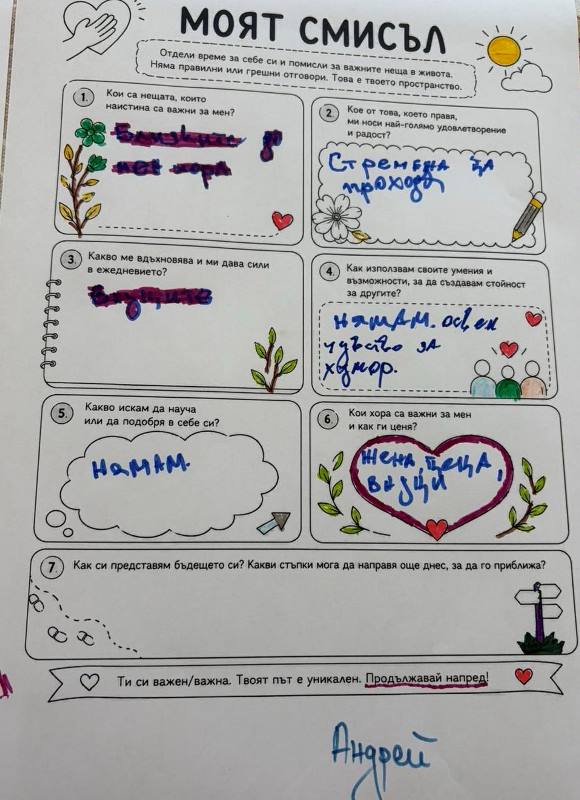 МОЯТ СМИСЪЛ
Отдели време за себе си и помисли за важните неща в живота.
Няма правилни или грешни отговори. Това е твоето пространство.
1.
Кои са нещата, които
наистина са важни за мен?
Близките до
мен хора
2.
Кое от това, което правя,
ми носи най-голямо удовлетворение
и радост?
Стремежа за
прохода
3.
Какво ме вдъхновява и ми дава сили
в ежедневието?
4.
Как използвам своите умения и
възможности, за да създавам стойност
за другите?
нямам. освен
чувство за
хумор.
5.
Какво искам да науча
или да подобря в себе си?
нямам.
6.
Кои хора са важни за мен
и как ги ценя?
жена, деца,
внуци
7.
Как си представям бъдещето си? Какви стъпки мога да направя още днес, за да го приближа?
Ти си важен/важна. Твоят път е уникален. Продължавай напред!
Андрей